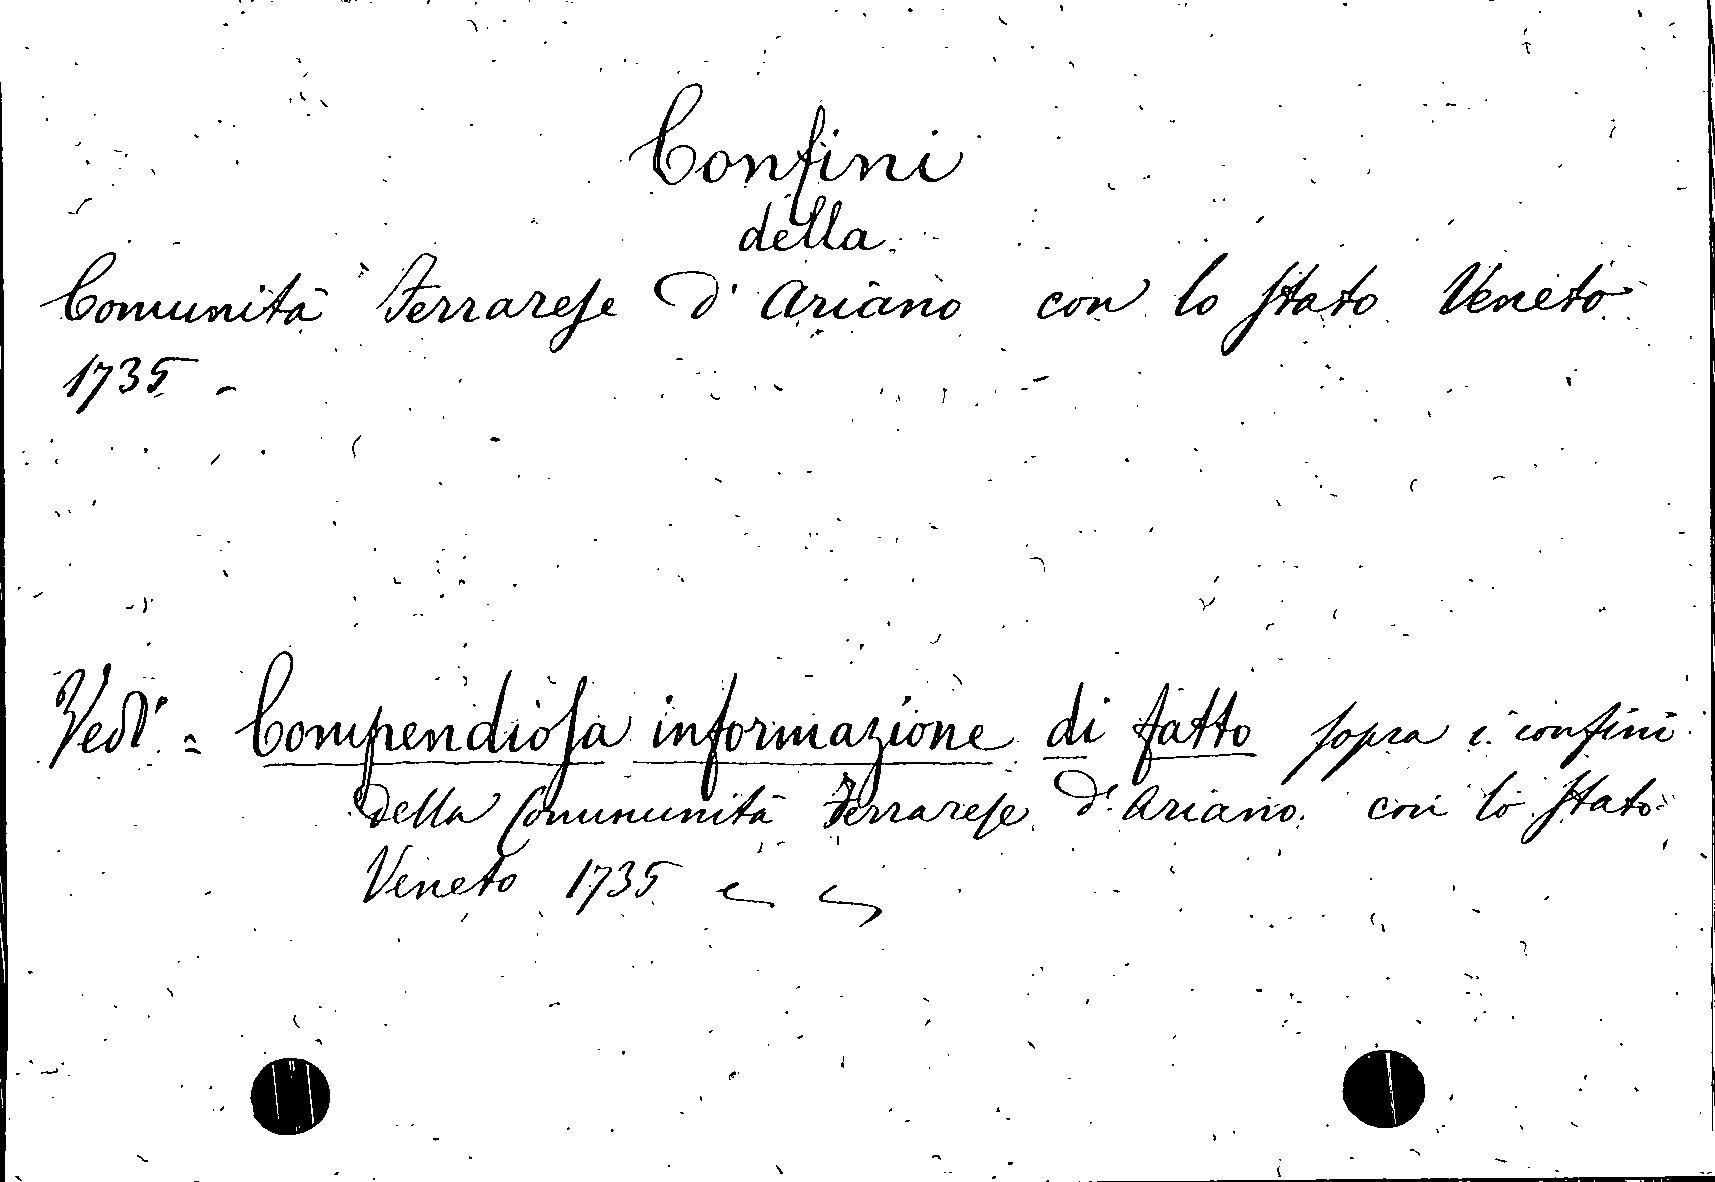 Confini
della
Comunità Ferrarese d'Ariano con lo Stato Veneto
1735 -
Vedi = Compendiosa informazione di fatto sopra i confini
della Comununità Ferrarese d'Ariano con lo Stato
Veneto 1735